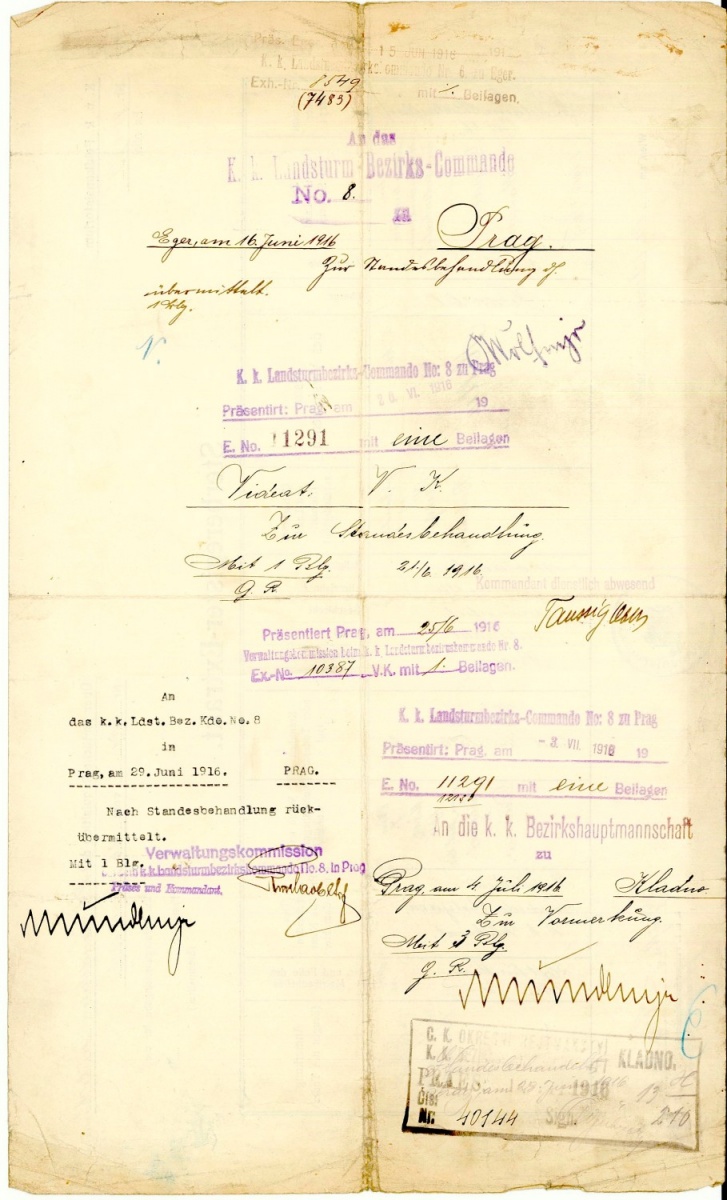 15 JUN 1916
K. k. Landsturmbezirks-commando No. 6 zu Eger.
Exh.-No. 8549 mit ./. Beilagen.
(7483)
An das
K. k. Landsturm-Bezirks-Commando
No. 8.
zu Prag.
Eger, am 16. Juni 1916
Zur Standesbehandlung
übermittelt.
1 Blg.
K. k. Landsturmbezirks-Commando No: 8 zu Prag
Präsentirt: Prag, am VI. 1916 19
E. No. 11291 mit eine Beilagen
Videat. V. K.
Zur Standesbehandlung.
Mit 1 Blg. 21./6. 1916
G. R.
Kommandant dienstlich abwesend
Präsentiert Prag, am 25/6 1916
Verwaltungskommission beim k. k. Landsturmbezirkskommando Nr. 8.
Ex.-No. 10387 V.K. mit 1. Beilagen.
An
das k.k. Ldst. Bez. Kdo. No. 8
in
Prag, am 29. Juni 1916. PRAG.
Nach Standesbehandlung rück-
übermittelt.
Mit 1 Blg.
Verwaltungskommission
beim k.k. Landsturmbezirkskommando No. 8, in Prag
Präses und Kommandant.
K. k. Landsturmbezirks-Commando No: 8 zu Prag
Präsentirt: Prag, am - 3. VII. 1916 19
E. No. 11291 mit eine Beilagen
An die k. k. Bezirkshauptmannschaft
zu
Prag, am 4 Juli 1916 Kladno
Zur Vormerkung.
Mit 3 Blg.
G. R.
KLADNO.
1916
Čís.
Nr. 40144 Sign.